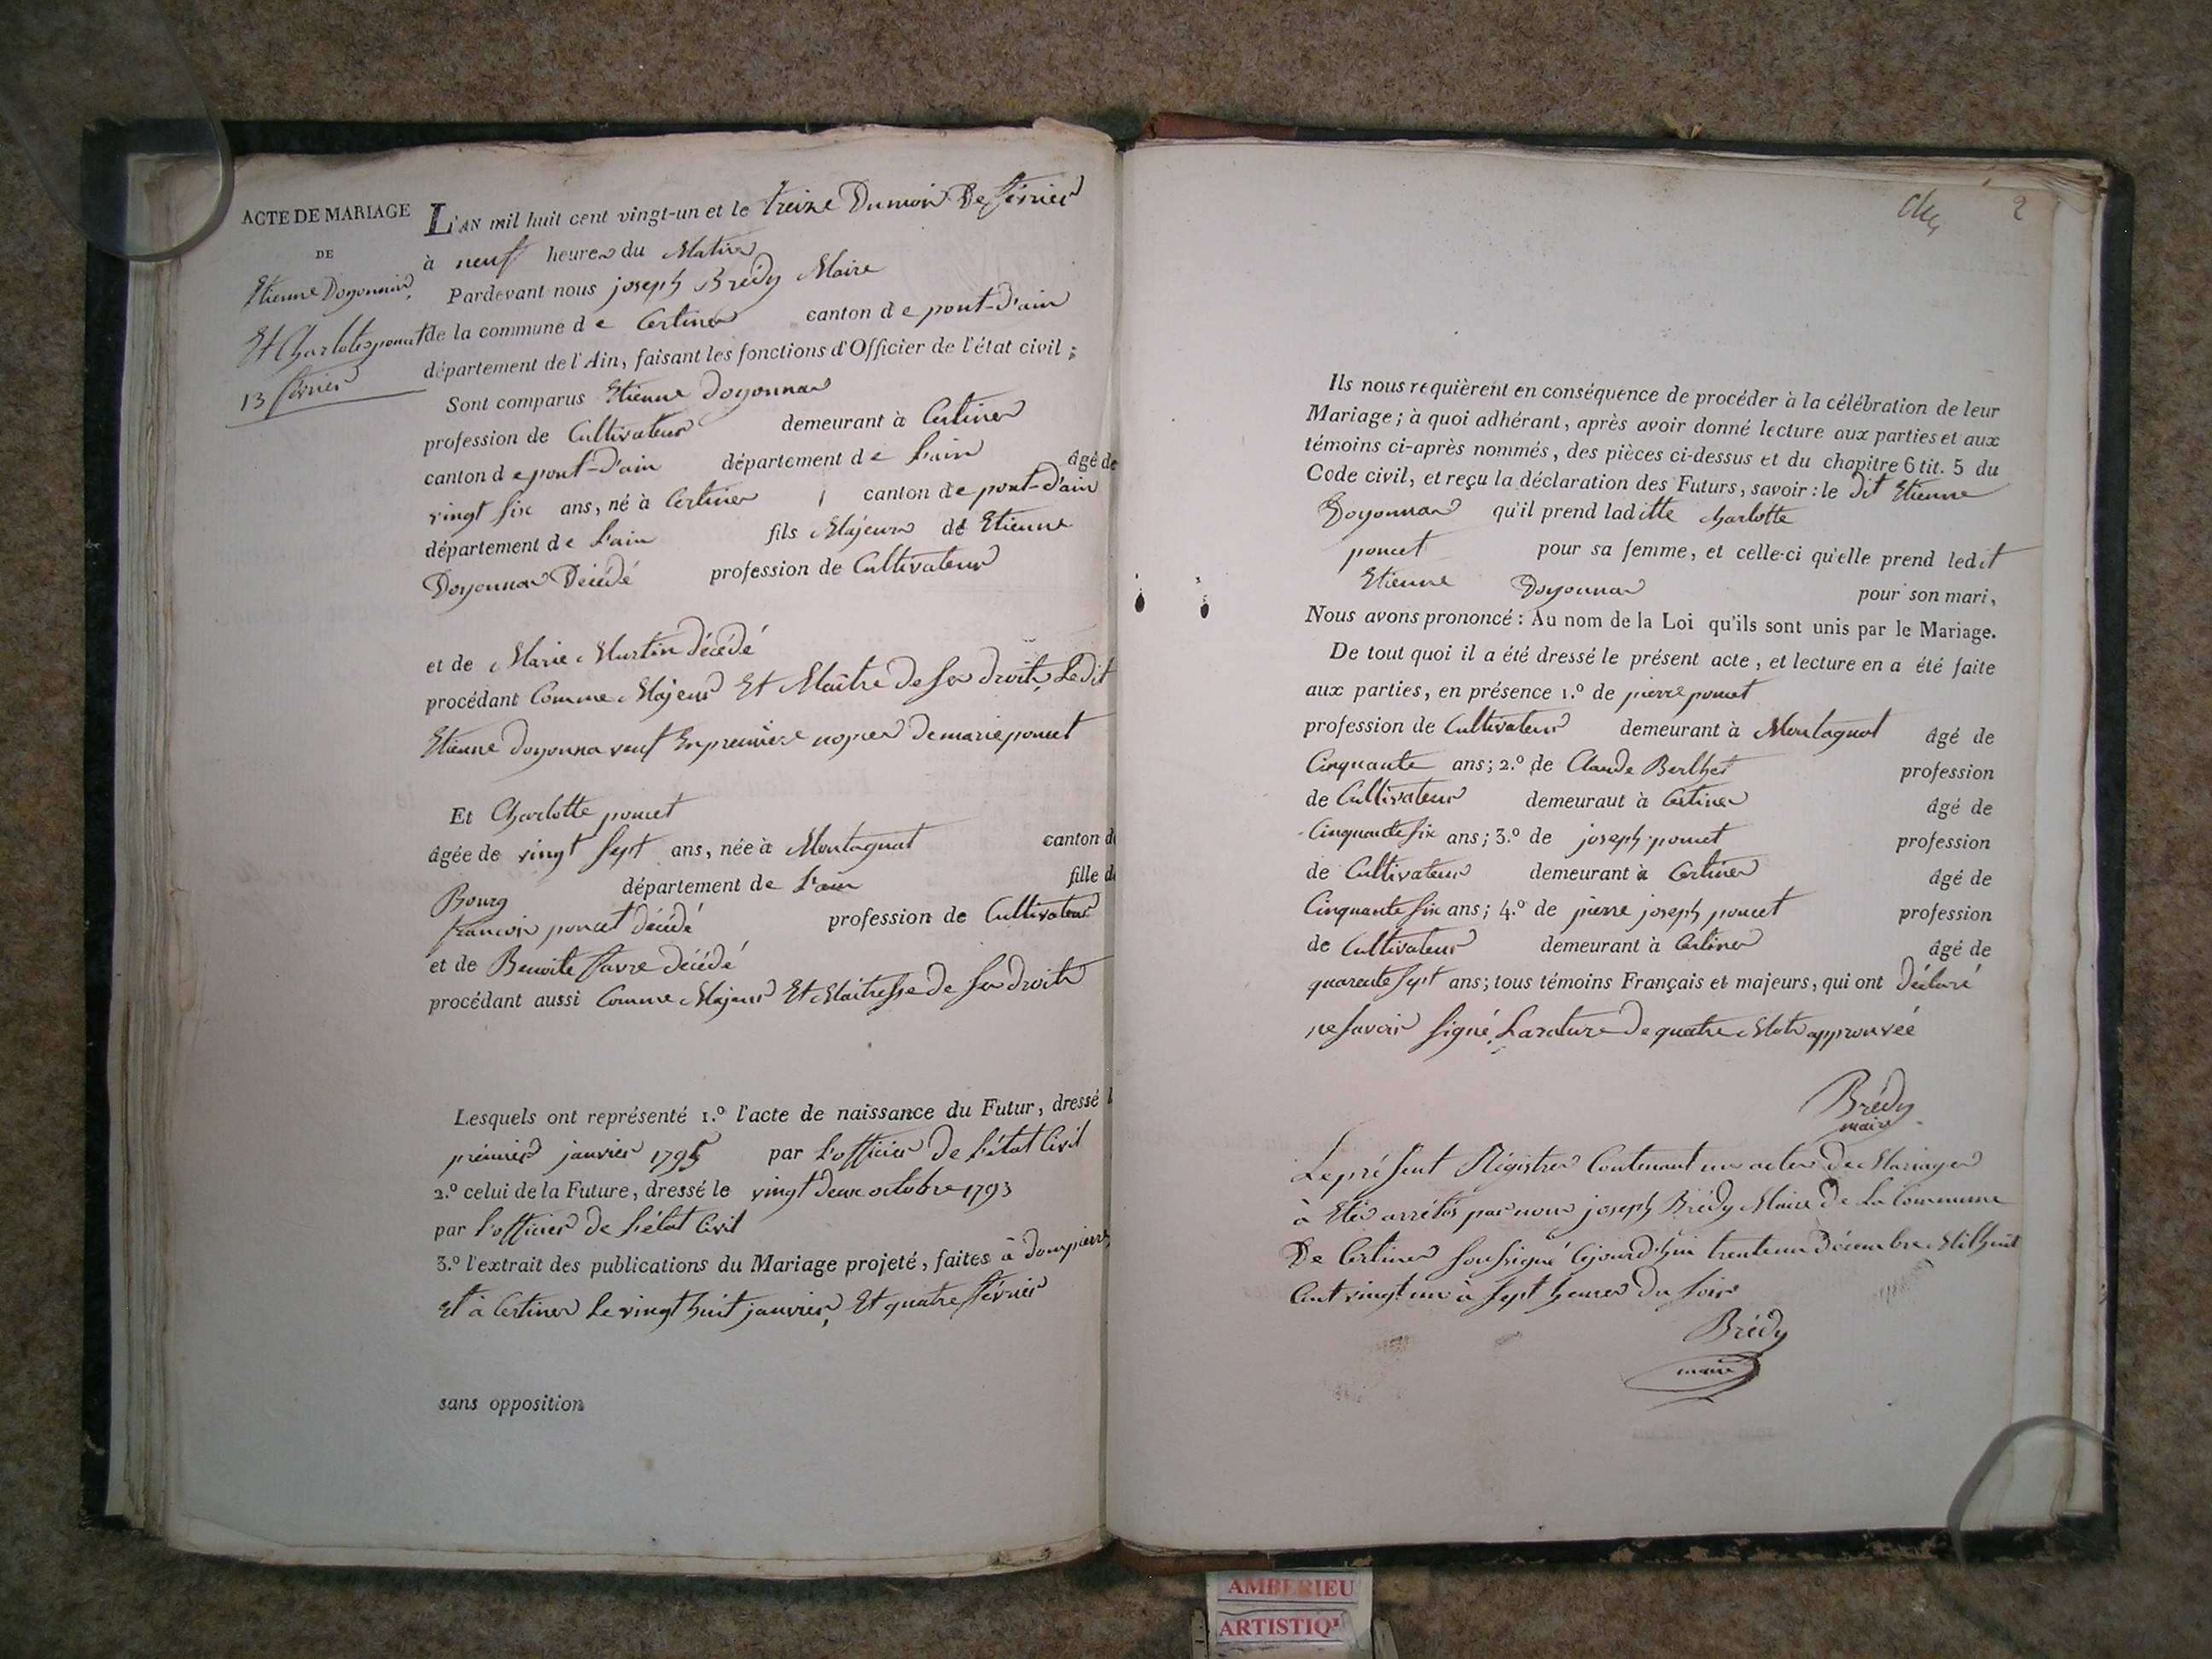 ACTE DE MARIAGE
DE
Etienne Doyonnas,
Et Charlotte poncet
13 février
L'AN mil huit cent vingt-un et le treize Du mois De février
à neuf heures du Matin
Pardevant nous joseph Brédy Maire
de la commune de Certines canton de pont-d'ain
département de l'Ain, faisant les fonctions d'Officier de l'état civil ;
Sont comparus Etienne Doyonnas
profession de Cultivateur demeurant à Certines
canton de pont-d'ain département de L'ain âgé de
vingt six ans, né à Certines canton de pont-d'ain
département de L'ain fils Majeur de Etienne
Doyonnas Décédé profession de Cultivateur
et de Marie Martin décédé
procédant Comme Majeur Et Maître de ses droits, Le dit
Etienne doyonna veuf En première nopces de marie poncet
Et Charlotte poncet
âgée de vingt sept ans, née à Montagnat canton de
Bourg département de L'ain fille de
francois poncet décédé profession de Cultivateur
et de Benoite favre décédé
procédant aussi Comme Majeur Et Maitresse de ses droits
Lesquels ont représenté 1.º l'acte de naissance du Futur, dressé l
premier janvier 1795 par L'officier De L'état Civil
2.º celui de la Future, dressé le vingt deux octobre 1793
par L'officier de L'état Civil
3.º l'extrait des publications du Mariage projeté, faites à dompierre
Et à Certines Le vingt huit janvier, Et quatre février
sans opposition
2
Ils nous requièrent en conséquence de procéder à la célébration de leur
Mariage ; à quoi adhérant, après avoir donné lecture aux parties et aux
témoins ci-après nommés, des pièces ci-dessus et du chapitre 6 tit. 5 du
Code civil, et reçu la déclaration des Futurs, savoir : le dit Etienne
Doyonnas qu'il prend laditte charlotte
poncet pour sa femme, et celle-ci qu'elle prend ledit
Etienne Doyonnas pour son mari,
Nous avons prononcé : Au nom de la Loi qu'ils sont unis par le Mariage.
De tout quoi il a été dressé le présent acte, et lecture en a été faite
aux parties, en présence 1.º de pierre poncet
profession de Cultivateur demeurant à Montagnat âgé de
Cinquante ans ; 2.º de Claude Berthet profession
de Cultivateur demeuraut à Certines âgé de
Cinquante six ans ; 3.º de joseph poncet profession
de Cultivateur demeurant à Certines âgé de
Cinquante six ans ; 4.º de pierre joseph poncet profession
de Cultivateur demeurant à Certines âgé de
quarente sept ans ; tous témoins Français et majeurs, qui ont Déclaré
ne savoir signé, La rature De quatre Mots approuvée
Brédy
maire
Le présent Régistres Contenant un actes de Mariages
à Etés arrétés par nous joseph Brédy Maire de La Commune
De Certines soussigné Cejourd'hui trente un Décembre Mil huit
Cent vingt un à sept heures Du soir
Brédy
maire
AMBERIEU
ARTISTIQ